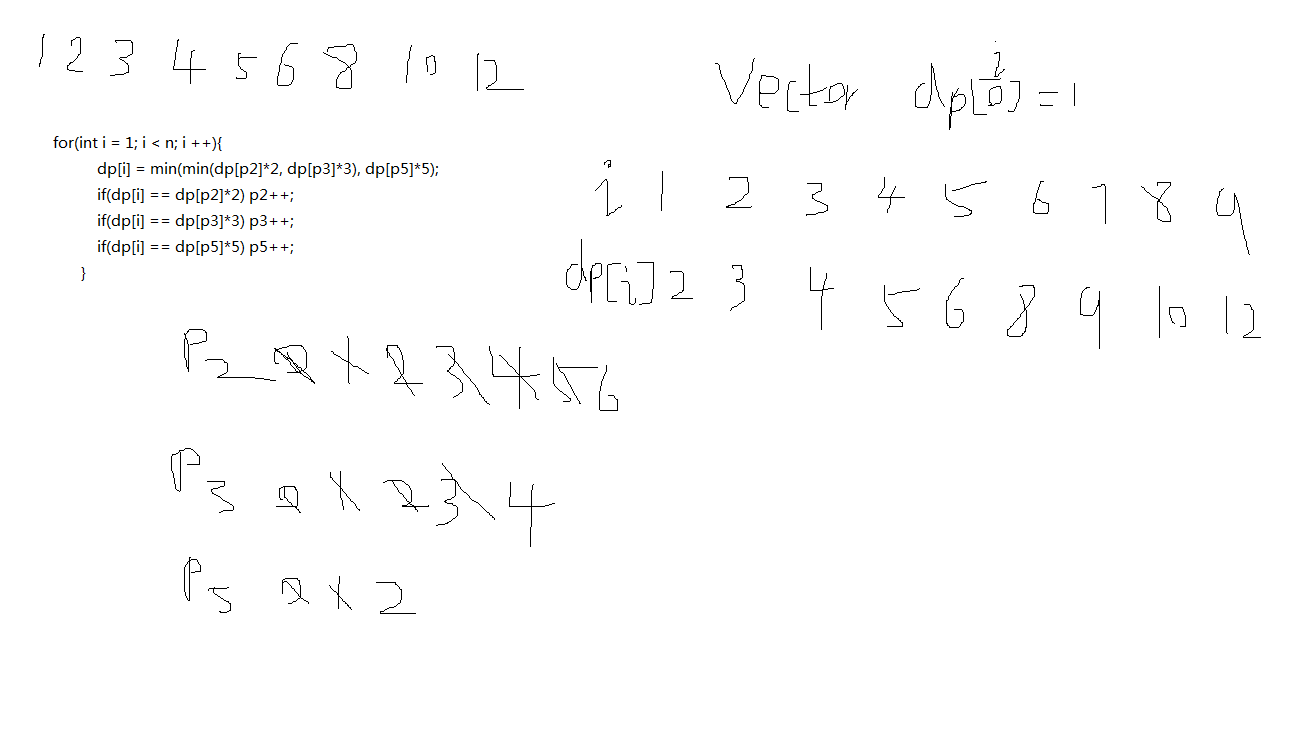 1 2 3 4 5 6 8 10 12
Vector dp[0] = 1
i
for(int i = 1; i < n; i ++){
dp[i] = min(min(dp[p2]*2, dp[p3]*3), dp[p5]*5);
if(dp[i] == dp[p2]*2) p2++;
if(dp[i] == dp[p3]*3) p3++;
if(dp[i] == dp[p5]*5) p5++;
}
i 1 2 3 4 5 6 7 8 9
dp[i] 2 3 4 5 6 8 9 10 12
P2 0 1 2 3 4 5 6
P3 0 1 2 3 4
P5 0 1 2